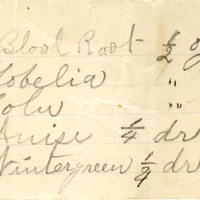 Blood Root ½ o
Lobelia "
Tolu "
Anise ¼ dr
Wintergreen ¼ dr